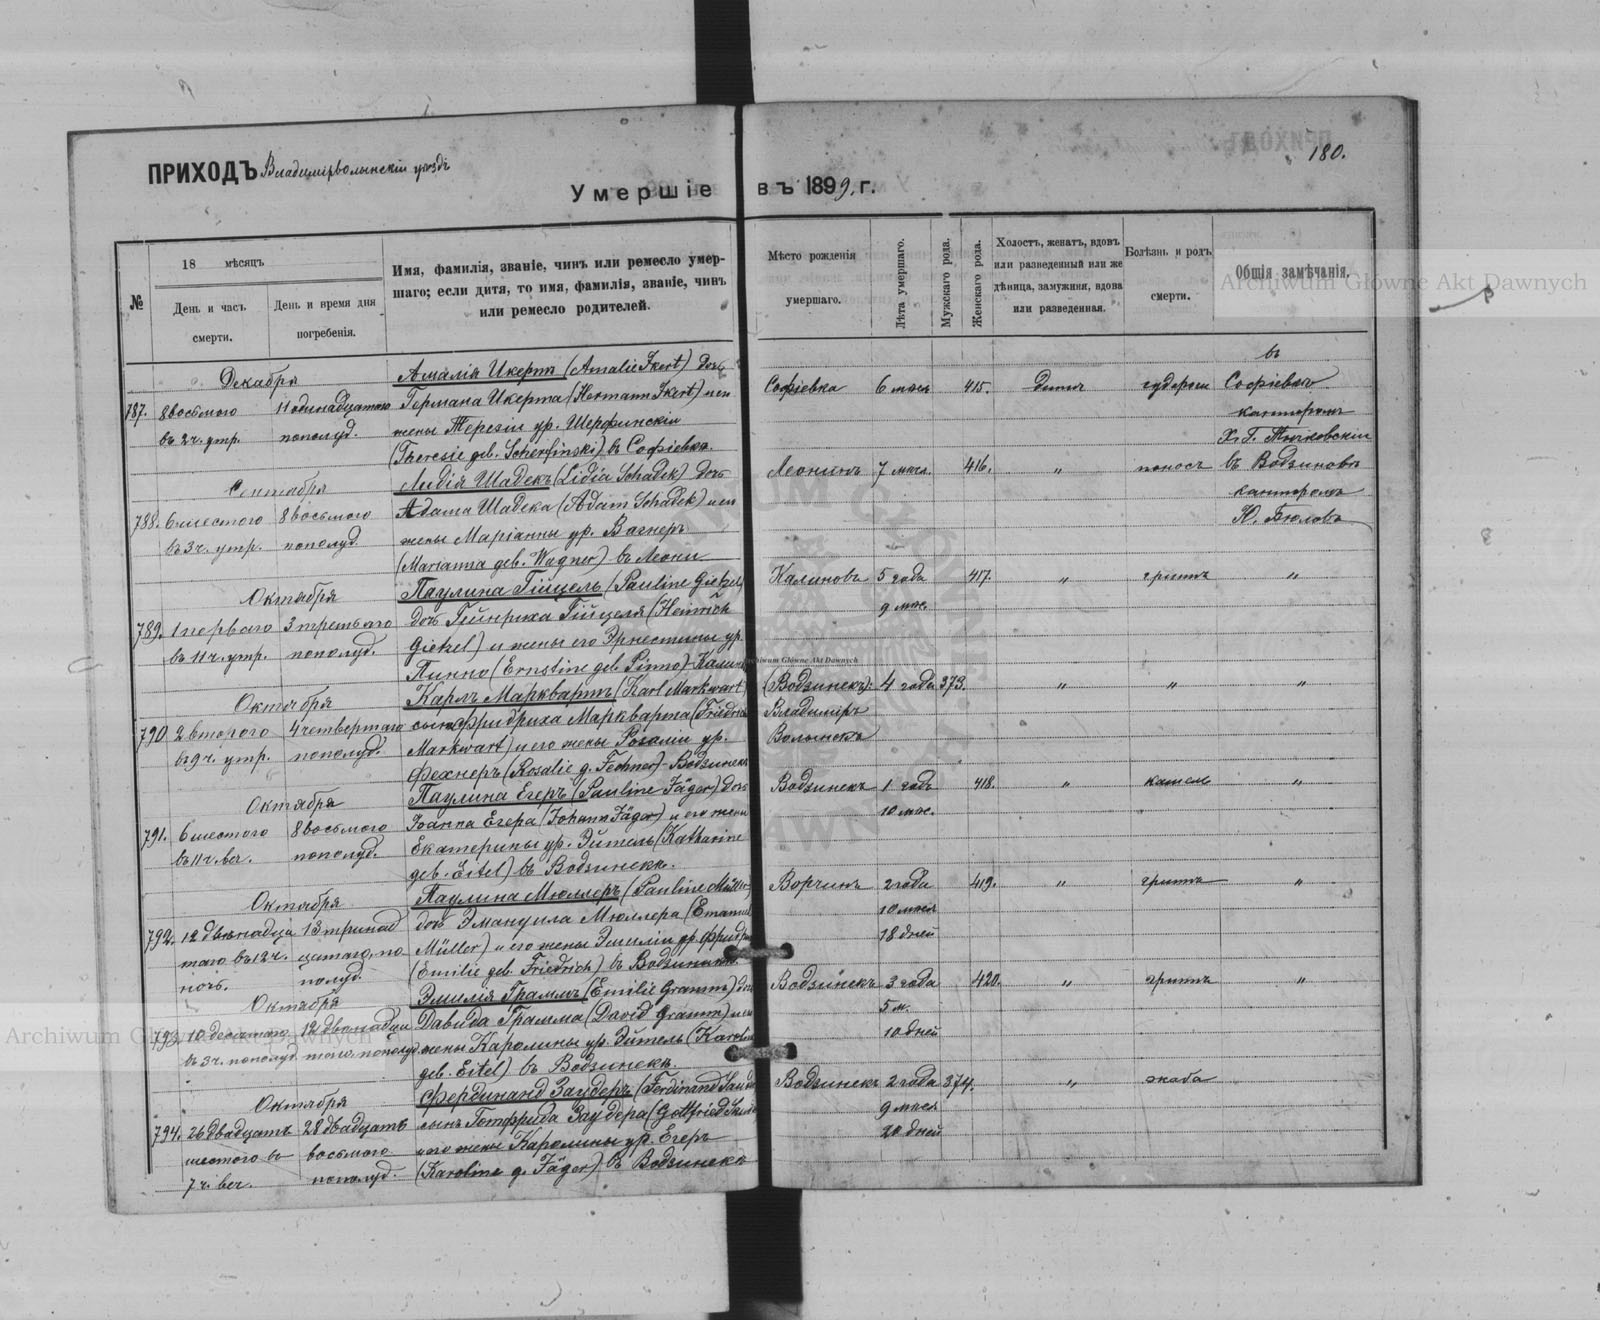 ПРИХОДЪ Владимірволынскій уѣздъ
180.
Умершіе въ 1899 г.
№
18 мѣсяцъ
День и часъ смерти.
День и время дня погребенія.
Имя, фамилія, званіе, чинъ или ремесло умер-
шаго; если дитя, то имя, фамилія, званіе, чинъ
или ремесло родителей.
Мѣсто рожденія
умершаго.
Лѣта умершаго.
Мужскаго рода.
Женскаго рода.
Холостъ, женатъ, вдовъ
или разведенный или же
дѣвица, замужняя, вдова
или разведенная.
Болѣзнь и родъ
смерти.
Общія замѣчанія.
Archiwum Główne Akt Dawnych
Декабря
Амалія Икертъ (Amalie Ikert) дочь
въ
787. 8 восьмого 11 одинадцатаго Германа Икерта (Hermann Ikert) и его
Софіевка 6 мѣся 415. дитя Софіевкѣ
въ 2 ч. утр. пополуд. жены Терезіи ур. Шерфинскій
канторомъ
(Theresie geb. Scherfinski) въ Софіевкѣ
Сентября
Лидія Шадекъ (Lidia Schadek) дочь
Леонинъ 7 мѣся. 416. " поносъ въ Водзиновѣ
канторомъ
788. 6 шестого 8 восьмого Адама Шадека (Adam Schadek) и его
Ю. Бюловъ
въ 3 ч. утр. пополуд. жены Маріанны ур. Вагнеръ
(Marianna geb. Wagner) въ Леони
Октября
Паулина Гійцель (Pauline Gietzel)
Калиновъ 5 годъ 417. " гриппъ "
9 мѣс.
789. 1 перваго 3 третьяго дочь Гейнриха Гійцеля (Heinrich
въ 11 ч. утр. пополуд. Gietzel) и жены его Эрнестины ур.
Пинно (Ernstine geb. Pinno) Калин
Archiwum Główne Akt Dawnych
Октября
Карлъ Марквартъ (Karl Markwart)
(Водзинекъ) 4 года 373. " " "
790 2 второго 4 четвертаго сынъ Фридриха Маркварта (Friedrich
Владиміръ
въ 9 ч. утр. пополуд. Markwart) и его жены Розаліи ур.
Волынскъ
Фехнеръ (Rosalie g. Fechner) Водзинек
Октября
Паулина Егеръ (Pauline Jäger) дочь
Водзинекъ 1 годъ 418. " кашель "
10 мѣс.
791. 6 шестого 8 восьмого Іоанна Егера (Johann Jäger) и его жены
въ 11 ч. веч. пополуд. Екатерины ур. Эйтель (Katharine
geb. Eitel) въ Водзинекѣ.
Октября
Паулина Мюллеръ (Pauline Müller)
Ворчинъ 2 года 419. " гриппъ "
10 мѣся
18 дней
792. 12 двѣнадца 13 тринад дочь Эмануила Мюллера (Emanuel
таго въ 12 ч. цатаго, по Müller) и его жены Эмиліи ур Фридри
ночь. полуд. (Emilie geb. Friedrich) въ Водзинекѣ.
Октября
Эмилія Граммъ (Emilie Gramm) дочь
Водзинекъ 3 года 420. " гриппъ "
5 м.
10 дней
793. 10 десятаго 12 двѣнадца Давида Грамма (David Gramm) и его
въ 3 ч. пополуд. таго пополуд. жены Каролины ур. Эйтель (Karolin
geb. Eitel) въ Водзинекѣ.
Archiwum Główne Akt Dawnych
Октября
Фердинанд Заудеръ (Ferdinand Saude
Водзинекъ 2 года 374. " жаба
9 мѣся
20 дней
794. 26 двадцать 28 двадцать сынъ Готфрида Заудера (Gottfried
шестого въ восьмого и его жены Каролины ур. Егеръ
7 ч. веч. пополуд. (Karoline g. Jäger) въ Водзинекѣ